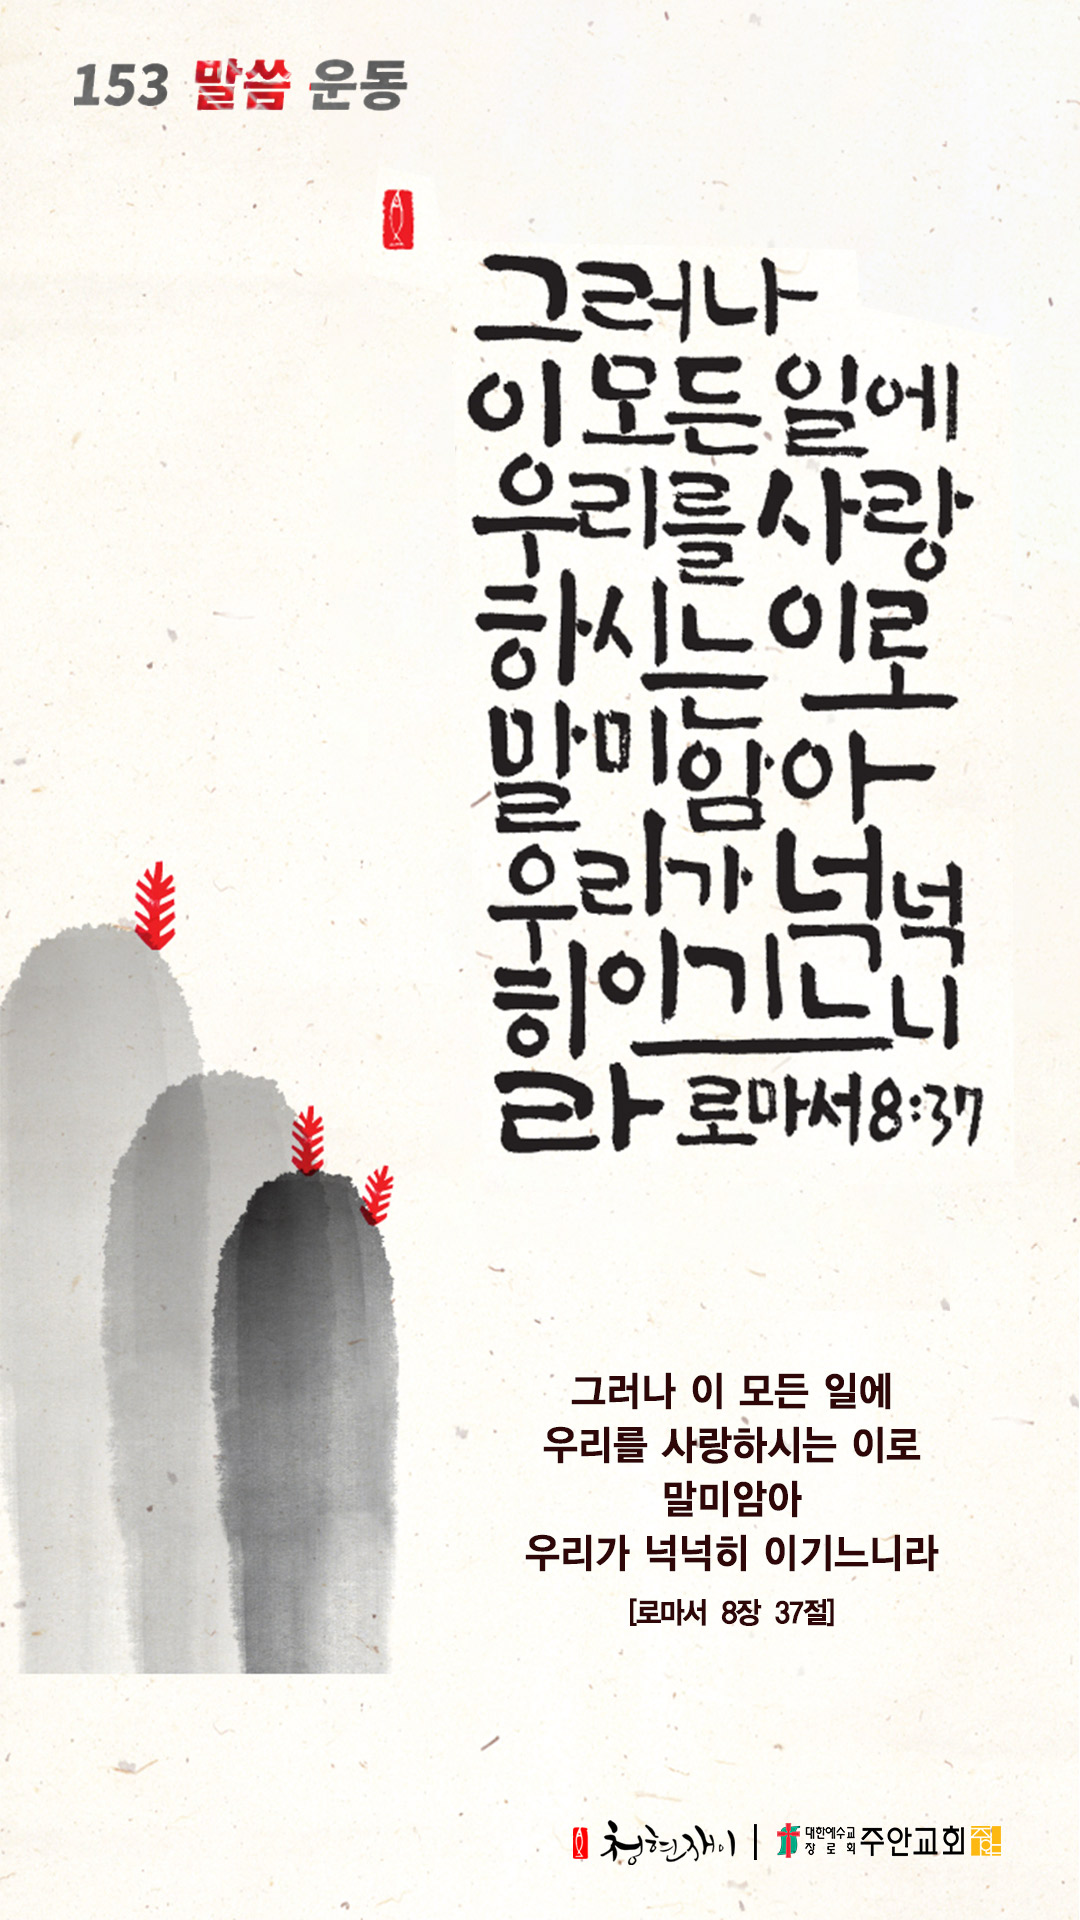 153 말씀 운동
그러나
이 모든 일에
우리를 사랑
하시는 이로
말미암아
우리가 넉넉
히 이기느니
라 로마서 8:37
그러나 이 모든 일에
우리를 사랑하시는 이로
말미암아
우리가 넉넉히 이기느니라
[로마서 8장 37절]
청현재이 | 대한예수교
장로회 주안교회 주안